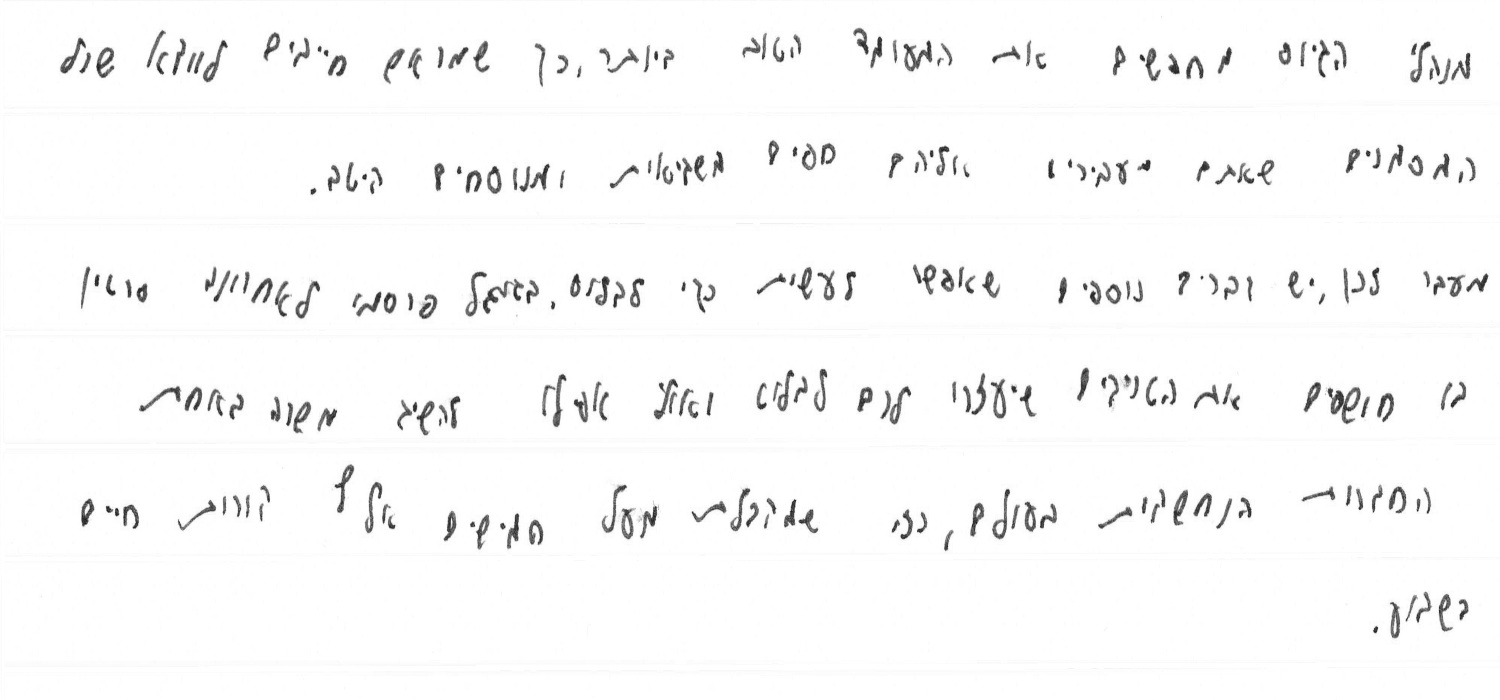 מנהלי הגיוס מחפשים את המועמד הטוב ביותר, כך שמראש חייבים לוודא שכל
המסמנים שאתם מעבירים אליהם חפים משגיאות ומנוסחים היטב.
מעבר לכן, יש דברים נוספים שאפשר לעשות כדי לבלוט. בגוגל פרסמו לאחרונה סרטון
בו חושפים את הטריקים שיעזרו לכם לבלוט ואולי אפילו להשיג משרה באחת
החברות הנחשבות בעולם, כזו שמקבלת מעל חמישים אלף קורות חיים
בשבוע.